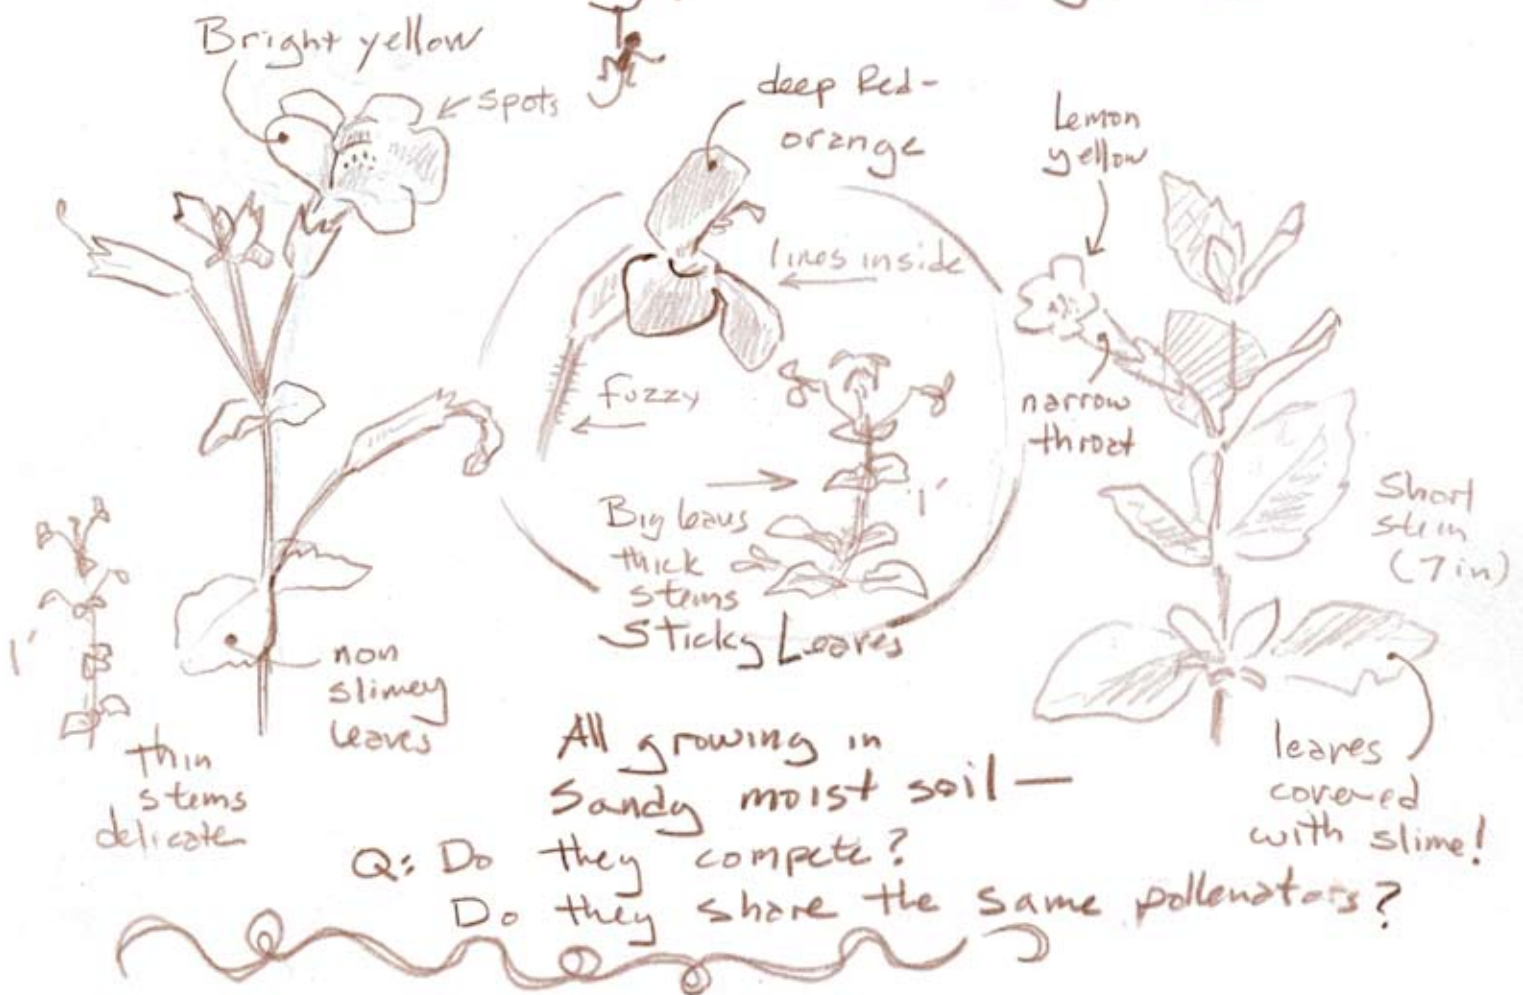 Bright yellow
spots
deep Red-
orange
Lemon
yellow
lines inside
fuzzy
narrow
throat
Big leavs
thick
stems
Sticky Leaves
1'
Short
stem
(7in)
1'
non
slimey
leaves
thin
stems
delicate
leaves
covered
with slime!
All growing in
Sandy moist soil —
Q: Do they compete?
Do they share the same pollenators?